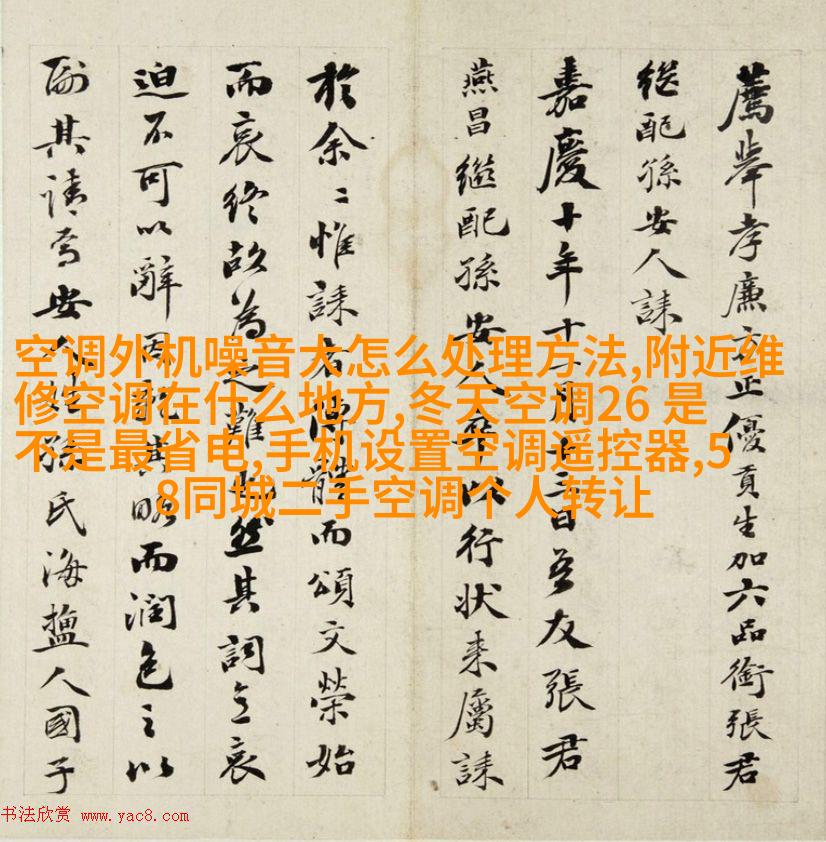 薦舉孝廉方正優貢生加六品銜張君
繼配孫安人誄
嘉慶十年十一月廿三日吾友張君
燕昌繼配孫安人卒以行状来屬誄
於余〻惟誄者傳體而頌文榮始
而哀終故為之難也然其詞之哀
迫不可以辭因就其略而潤色之以
副其請焉安人姓孫氏海盬人國子
空调外机噪音大怎么处理方法,附近维
修空调在什么地方,冬天空调26 是
不是最省电,手机设置空调遥控器,5
8同城二手空调个人转让
书法欣赏 www.yac8.com